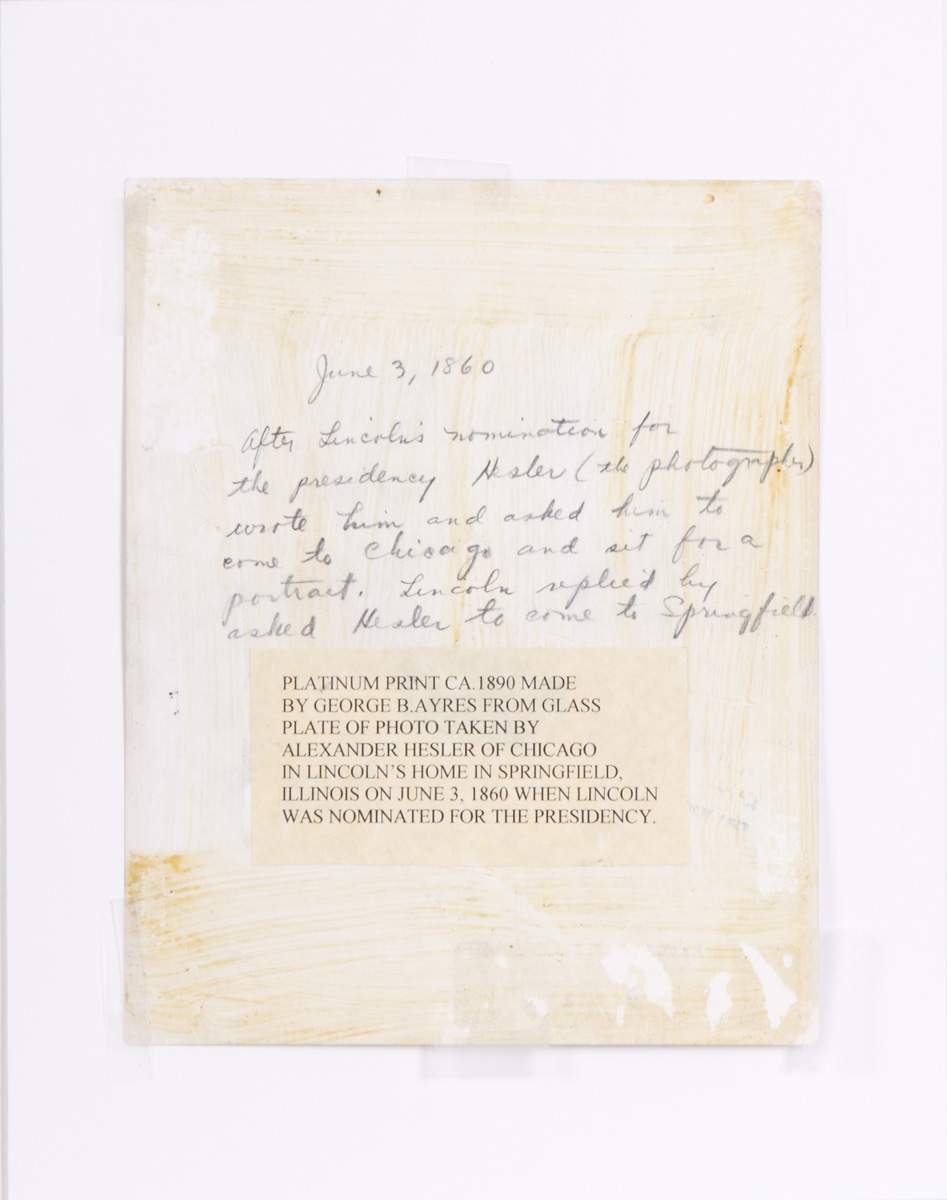 June 3, 1860
After Lincoln's nomination for
the presidency Hesler (the photographer)
wrote him and asked him to
come to Chicago and sit for a
portrait. Lincoln replied by
asked Hesler to come to Springfield.
PLATINUM PRINT CA.1890 MADE
BY GEORGE B.AYRES FROM GLASS
PLATE OF PHOTO TAKEN BY
ALEXANDER HESLER OF CHICAGO
IN LINCOLN'S HOME IN SPRINGFIELD,
ILLINOIS ON JUNE 3, 1860 WHEN LINCOLN
WAS NOMINATED FOR THE PRESIDENCY.